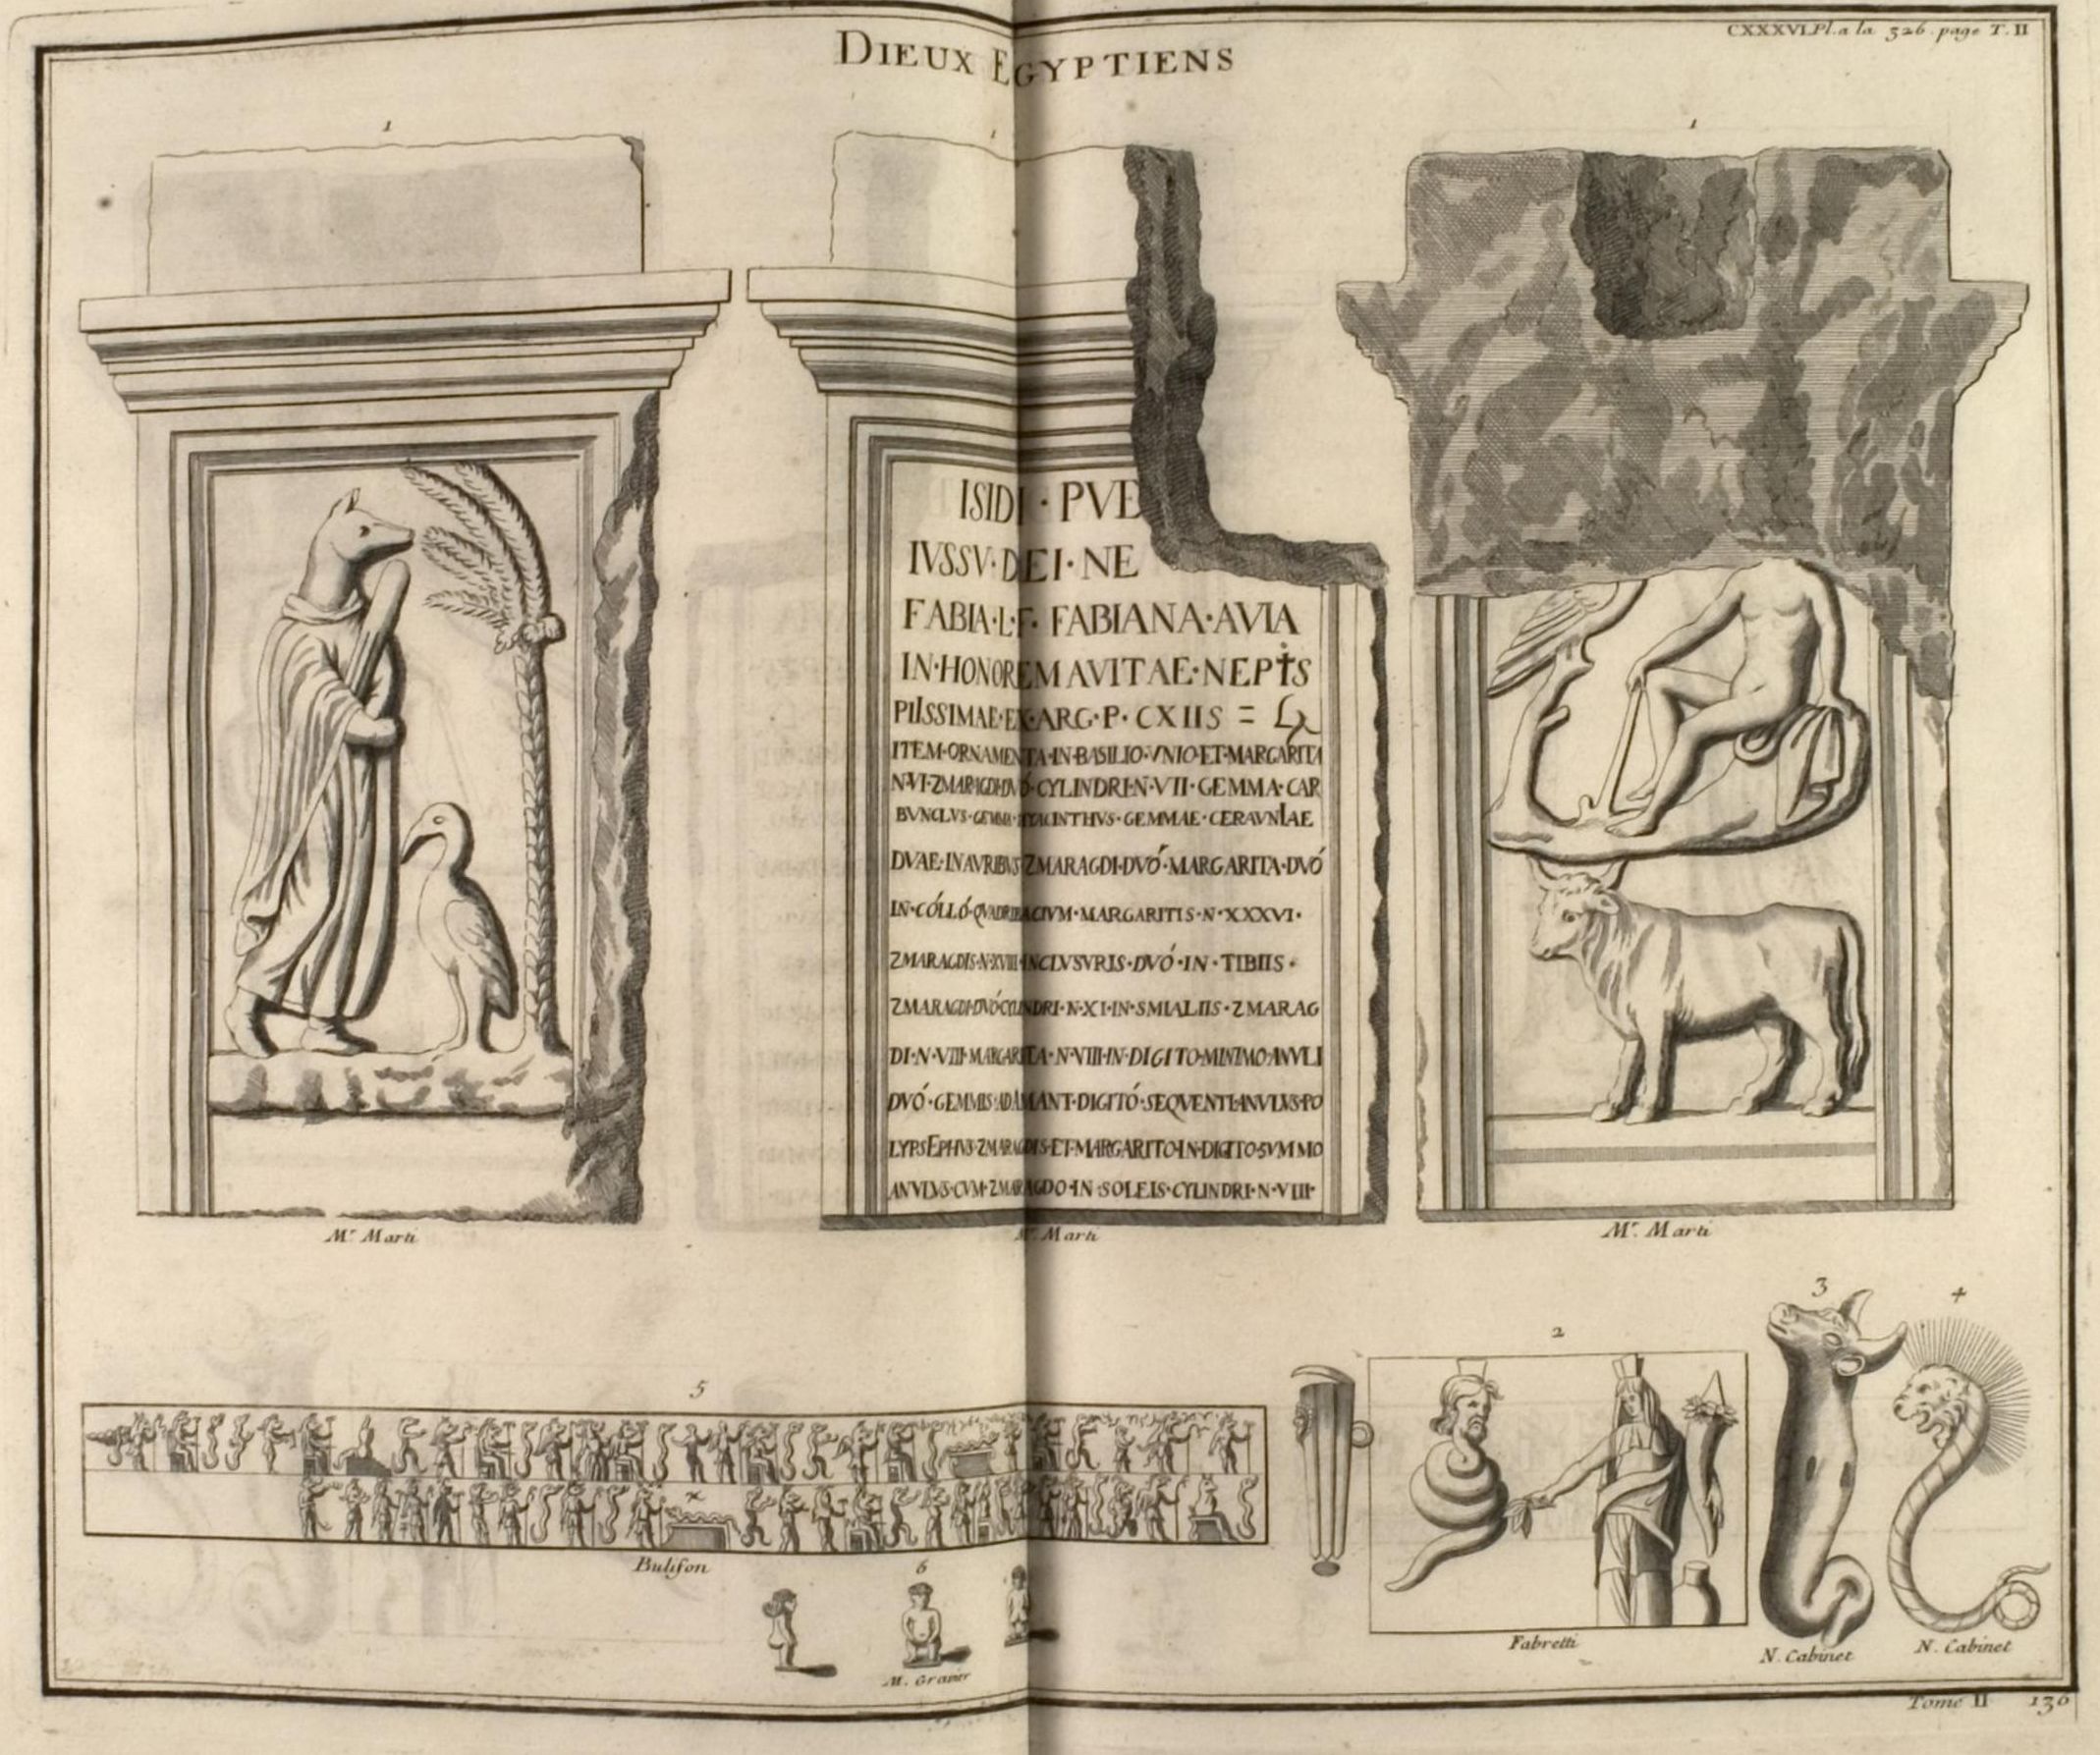 CXXXVI.Pl. a la 326. page T. II
DIEUX EGYPTIENS
1
1
1
ISIDI · PVE
IVSSV · DEI · NE
FABIA · L · F · FABIANA · AVIA
IN · HONOREM AVITAE · NEPTIS
PIISSIMAE · EX · ARG · P · CXIIS =
ITEM · ORNAMENTA · IN · BASILIO · VNIO · ET · MARGARITA
N · VI · ZMARAGDI · DVO · CYLINDRI · N · VII · GEMMA · CAR
BVNCLVS · GEMMA · HYACINTHVS · GEMMAE · CERAVNIAE
DVAE · IN AVRIBVS ZMARAGDI · DVÓ · MARGARITA · DVÓ
IN · CÓLLÓ · QVADRIBACIVM · MARGARITIS · N · XXXVI ·
ZMARAGDIS · N · XVIII · INCLVSVRIS · DVÓ · IN · TIBIIS ·
ZMARAGDI · DVÓ CYLINDRI · N · XI · IN · SMIALIIS · ZMARAG
DI · N · VIII · MARGARITA · N · VIII · IN · DIGITO · MINIMO · ANVLI
DVÓ · GEMMIS · ADAMANT · DIGITÓ · SEQVENTI · ANVLVS · PO
LYPSEPHVS · ZMARAGDIS · ET · MARGARITO · IN · DIGITO · SVMMO
ANVLVS · CVM · ZMARAGDO · IN · SOLEIS · CYLINDRI · N · VIII ·
Mr. Marti
Mr. Marti
Mr. Marti
5
2
3
4
Bulifon
6
M. Granier
Fabretti
N. Cabinet
N. Cabinet
Tome II 136